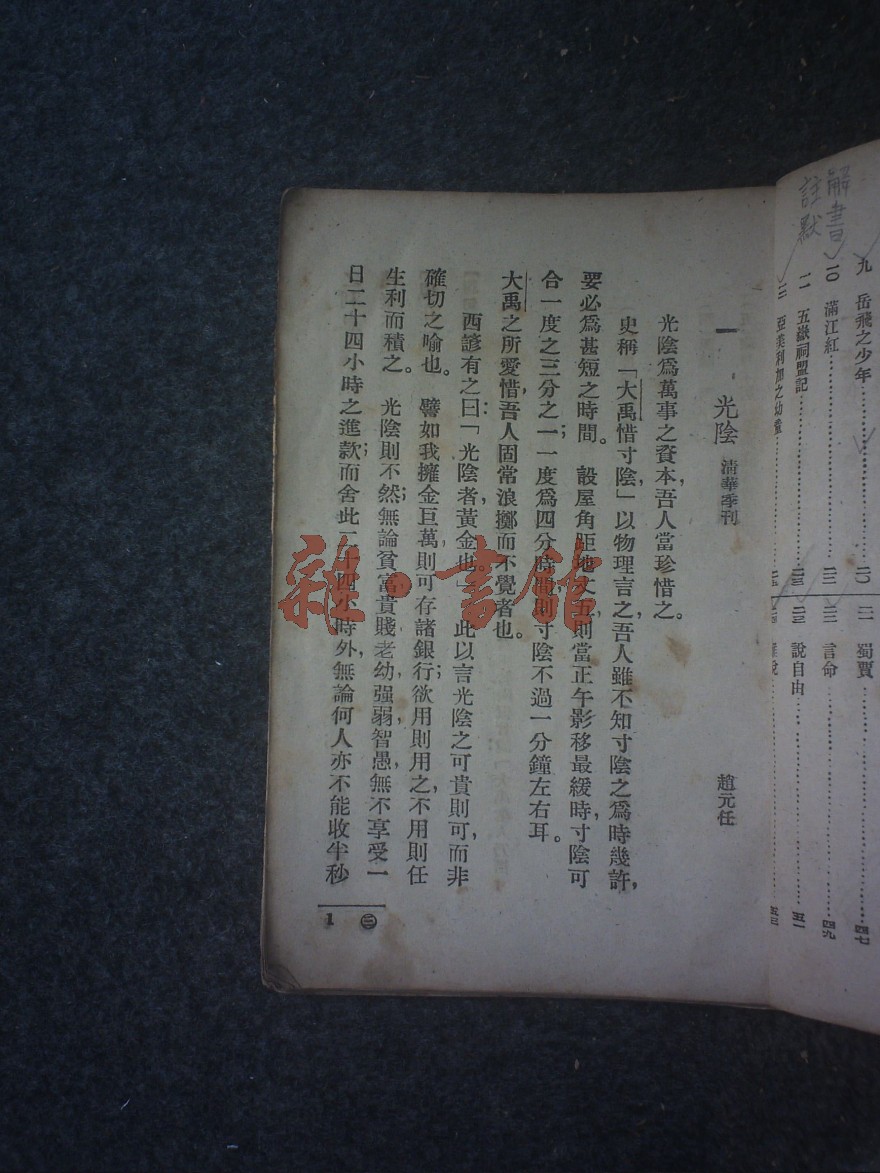 解書
註默
九 岳飛之少年 二〇
一〇 滿江紅 二二
一一 五嶽祠盟記 二三
一二 亞美利加之幼童
二一 蜀賈 四七
二二 言命 四九
二三 說自由 五一
五三
一 光陰 清華季刊 趙元任
光陰爲萬事之資本，吾人當珍惜之。
史稱「大禹惜寸陰，」以物理言之，吾人雖不知寸陰之爲時幾許，
要必爲甚短之時間。設屋角距地丈五，則當正午影移最緩時，寸陰可
合一度之三分之一；一度爲四分時間，則寸陰不過一分鐘左右耳。
大禹之所愛惜，吾人固常浪擲而不覺者也。
西諺有之曰：「光陰者，黃金也。」此以言光陰之可貴則可，而非
確切之喻也。譬如我擁金巨萬，則可存諸銀行；欲用則用之，不用則任
生利而積之。光陰則不然；無論貧富貴賤，老幼強弱，智愚，無不享受一
日二十四小時之進款；而舍此二十四小時外，無論何人亦不能收半秒
1 二
雜·書館